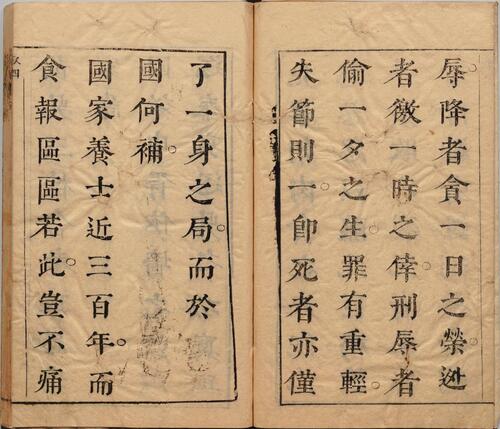 辱降者貪一日之榮逃
者徼一時之倖刑辱者
偷一夕之生罪有重輕
失節則一卽死者亦僅
了一身之局而於
國何補
國家養士近三百年而
食報區區若此豈不痛